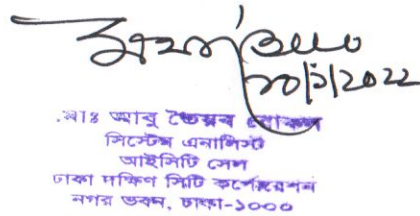 ২০/১/২০২২
মোঃ আবু তৈয়ব রোকন
সিস্টেম এনালিস্ট
আইসিটি সেল
ঢাকা দক্ষিণ সিটি কর্পোরেশন
নগর ভবন, ঢাকা-১০০০